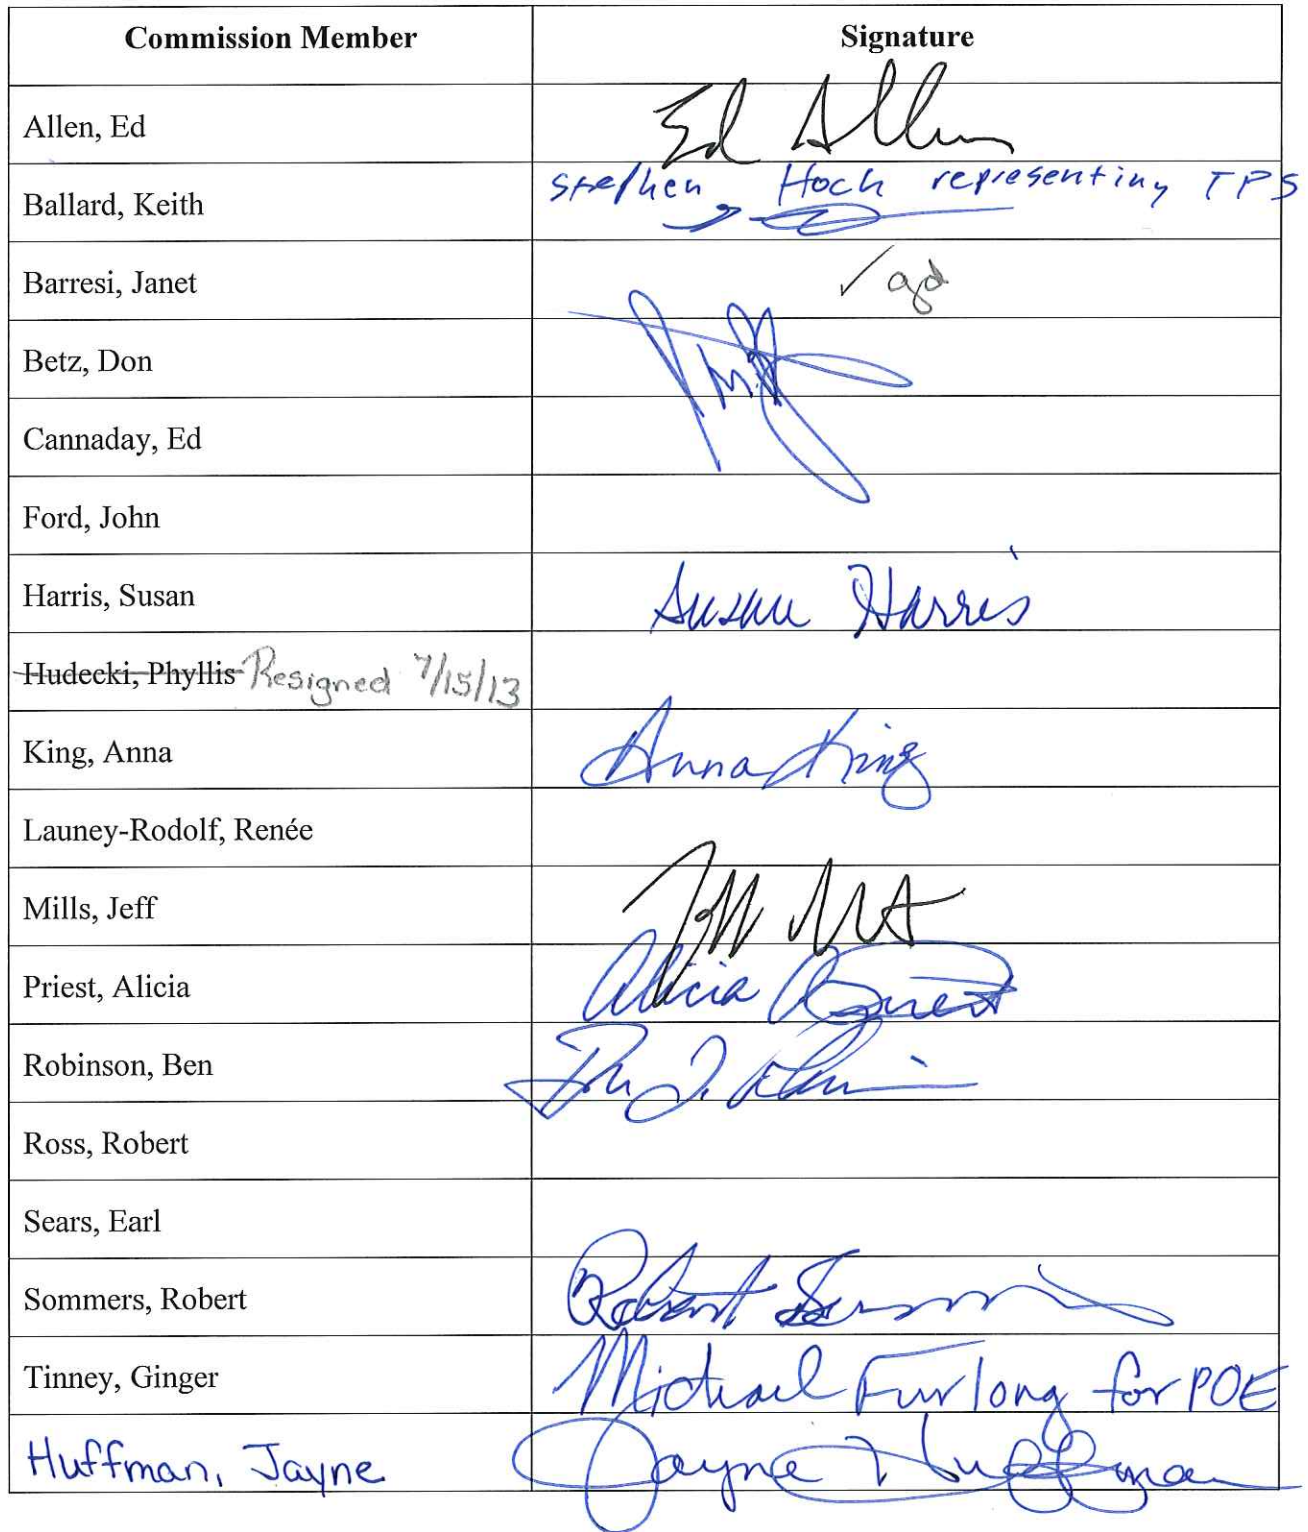 Commission Member Signature
Allen, Ed Ed Allen
Ballard, Keith Stephen Hoch representing TPS
Barresi, Janet ✓ agd
Betz, Don
Cannaday, Ed
Ford, John
Harris, Susan Susan Harris
Hudecki, Phyllis Resigned 7/15/13
King, Anna Anna King
Launey-Rodolf, Renée
Mills, Jeff
Priest, Alicia Alicia Priest
Robinson, Ben
Ross, Robert
Sears, Earl
Sommers, Robert Robert Sommers
Tinney, Ginger Michael Furlong for POE
Huffman, Jayne Jayne Huffman